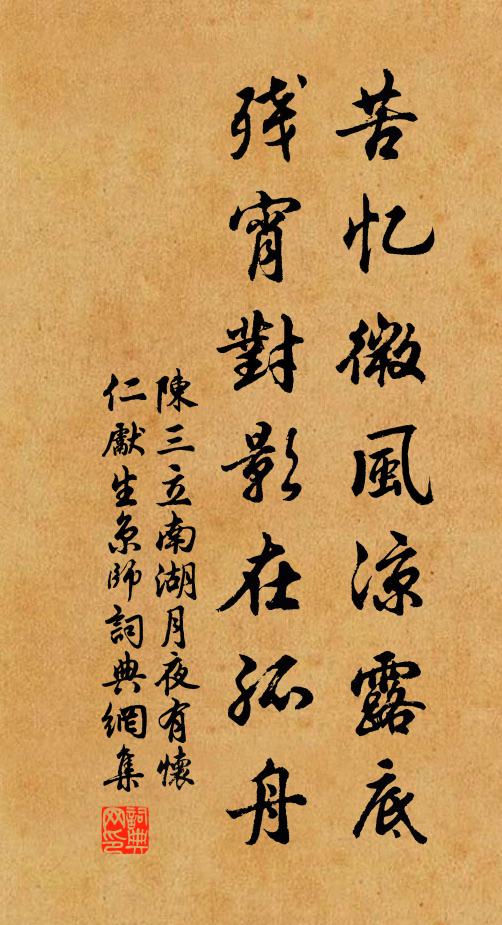 苦忆微風凉露底
残宵對影在孤舟
陳三立南湖月夜有懷
仁獻生京師詞典網集
詞典网印